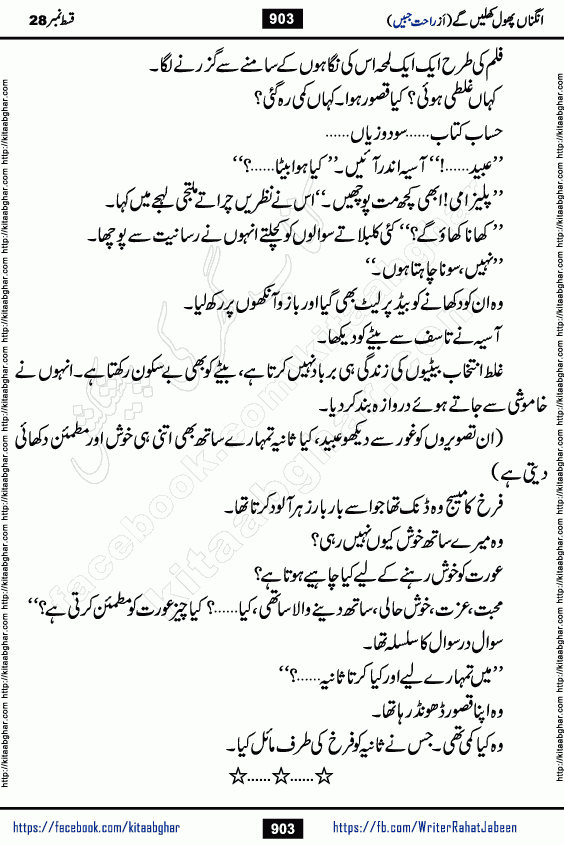 انگناں پھول کھلیں گے (از راحت جبیں)
903
قسط نمبر 28
فلم کی طرح ایک ایک لمحہ اس کی نگاہوں کے سامنے سے گزرنے لگا۔
کہاں غلطی ہوئی؟ کیا قصور ہوا۔ کہاں کمی رہ گئی؟
حساب کتاب......سود و زیاں......
’’عبید......!‘‘ آسیہ اندر آئیں۔ ’’کیا ہوا بیٹا......؟‘‘
’’پلیز امی! ابھی کچھ مت پوچھیں۔‘‘ اس نے نظریں چراتے ملتجی لہجے میں کہا۔
’’کھانا کھاؤ گے؟‘‘ کئی کلبلاتے سوالوں کو کچلتے انہوں نے رسانیت سے پوچھا۔
’’نہیں، سونا چاہتا ہوں۔‘‘
وہ ان کو دکھانے کو بیڈ پر لیٹ بھی گیا اور بازو آنکھوں پر رکھ لیا۔
آسیہ نے تاسف سے بیٹے کو دیکھا۔
غلط انتخاب بیٹیوں کی زندگی ہی برباد نہیں کرتا ہے، بیٹے کو بھی بے سکون رکھتا ہے۔ انہوں نے
خاموشی سے جاتے ہوئے دروازہ بند کر دیا۔
(ان تصویروں کو غور سے دیکھو عبید، کیا ثانیہ تمہارے ساتھ بھی اتنی ہی خوش اور مطمئن دکھائی
دیتی ہے)
فرخ کا میسج وہ ڈنک تھا جو اسے بار بار زہر آلود کرتا تھا۔
وہ میرے ساتھ خوش کیوں نہیں رہی؟
عورت کو خوش رہنے کے لیے کیا چاہیے ہوتا ہے؟
محبت، عزت، خوش حالی، ساتھ دینے والا ساتھی، کیا......؟ کیا چیز عورت کو مطمئن کرتی ہے؟‘‘
سوال در سوال کا سلسلہ تھا۔
’’میں تمہارے لیے اور کیا کرتا ثانیہ......؟‘‘
وہ اپنا قصور ڈھونڈ رہا تھا۔
وہ کیا کمی تھی۔ جس نے ثانیہ کو فرخ کی طرف مائل کیا۔
☆......☆......☆
https://facebook.com/kitaabghar
903
https://fb.com/WriterRahatJabeen
http://kitaabghar.com http://kitaabghar.com http://kitaabghar.com http://kitaabghar.com http://kitaabghar.com http://kitaabghar.com
http://kitaabghar.com http://kitaabghar.com http://kitaabghar.com http://kitaabghar.com http://kitaabghar.com http://kitaabghar.com
کتاب گھر کی پیشکش
kitaabghar.com
facebook.com/kitaabghar